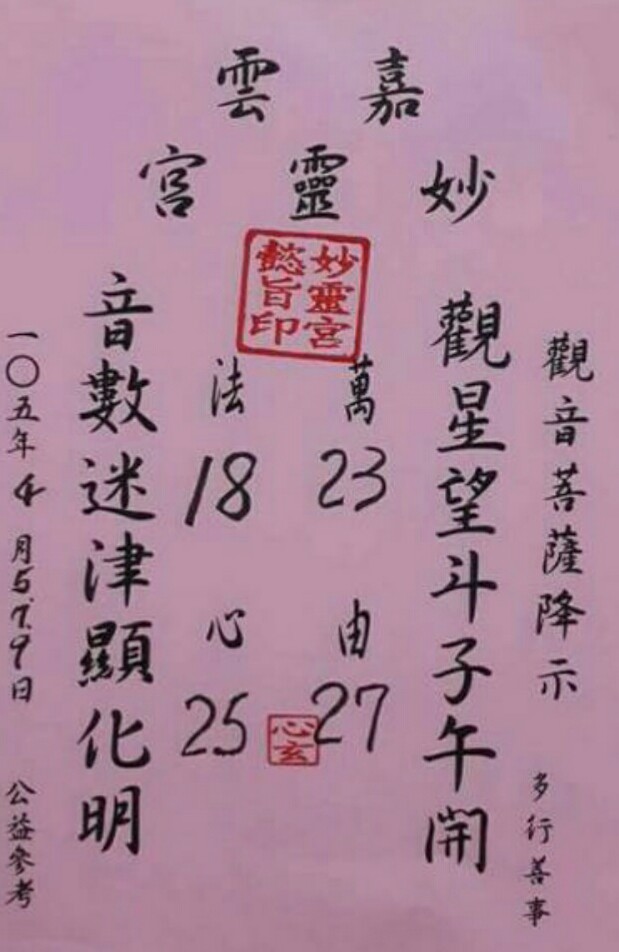 嘉雲
妙靈宮
妙靈宮
懿旨印
觀音菩薩降示 多行善事
觀星望斗子午開
萬 23 由 27
法 18 心 25
心玄
音數迷津顯化明
一〇五年4月5.7.9日 公益參考